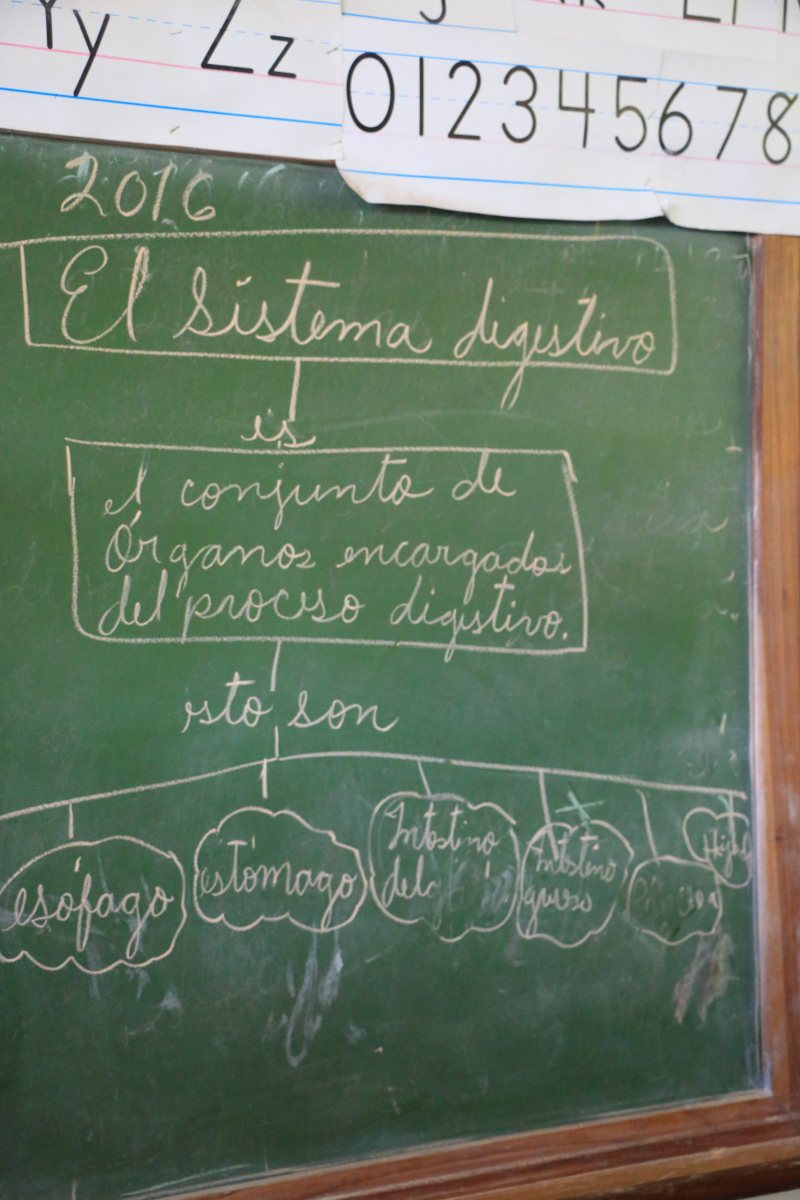 Yy Zz
0 1 2 3 4 5 6 7 8
2016
El Sistema digestivo
es
el conjunto de
Órganos encargados
del proceso digestivo.
esto son
esófago
estómago
Intestino
delg
Intestino
grueso